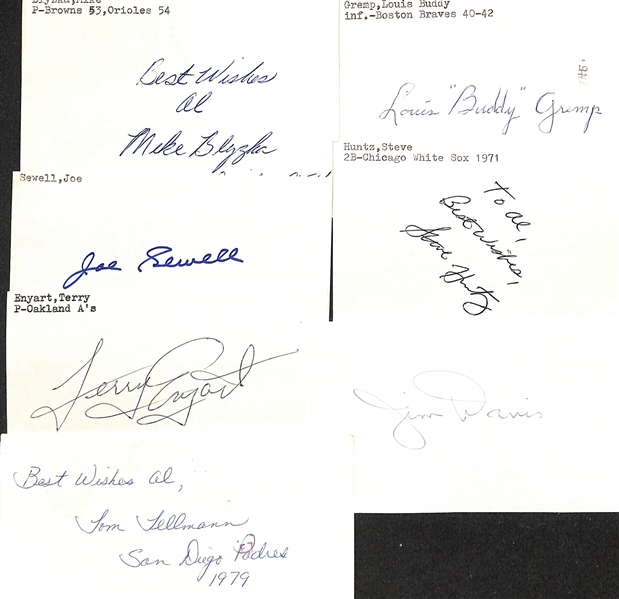 Blyzka,Mike
P-Browns 53,Orioles 54
Best Wishes
Al
Mike Blyzka
Gremp,Louis Buddy
inf.-Boston Braves 40-42
Louis "Buddy" Gremp
Sewell,Joe
Joe Sewell
Huntz,Steve
2B-Chicago White Sox 1971
To Al,
Best Wishes,
Steve Huntz
Enyart,Terry
P-Oakland A's
Terry Enyart
Jim Davis
Best Wishes Al,
Tom Tellmann
San Diego Padres
1979